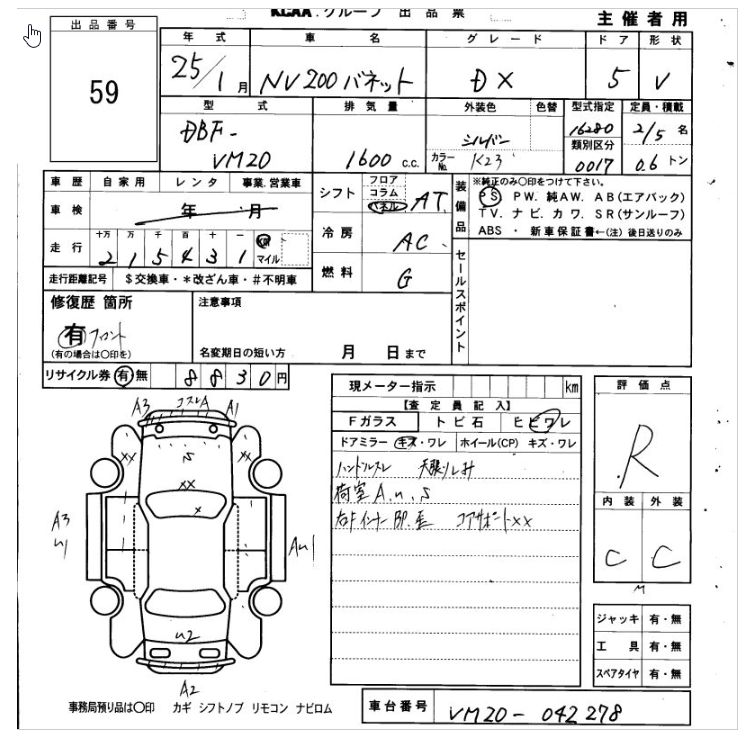 KCAA.グループ 出品票
主催者用
出品番号
59
年式 車名 グレード ドア 形状
25/1月 NV200バネット DX 5 V
型式 排気量 外装色 色替 型式指定 定員・積載
DBF-VM20 1600 c.c. シルバー カラーNo. K23 16280 2/5名
類別区分 0017 0.6トン
車歴 自家用 レンタ 事業.営業車
車検 年 月
走行 十万 万 千 百 十 一 km マイル
215431
走行距離記号 $交換車・*改ざん車・#不明車
シフト フロア コラム パネル AT
冷房 AC
燃料 G
装備品 ※純正のみ〇印をつけて下さい。
PS PW. 純AW. AB(エアバック)
TV. ナビ. カワ. SR(サンルーフ)
ABS ・ 新車保証書←(注)後日送りのみ
セールスポイント
修復歴 箇所
有 フロント
(有の場合は〇印を)
注意事項
名変期日の短い方 月 日まで
リサイクル券 有 無 8830円
現メーター指示 km
【査定員記入】
Fガラス トビ石 ヒビワレ
ドアミラー キズ・ワレ ホイール(CP) キズ・ワレ
ハンドルスレ 天張りしみ
荷室A.u.S
コアサポートxx
評価点
R
内装 外装
C C
M
ジャッキ 有・無
工具 有・無
スペアタイヤ 有・無
A3 コスレA A1
xx S xx
xx
x
A3
u1
Au1
u2
A2
事務局預り品は〇印 カギ シフトノブ リモコン ナビロム
車台番号 VM20-042278